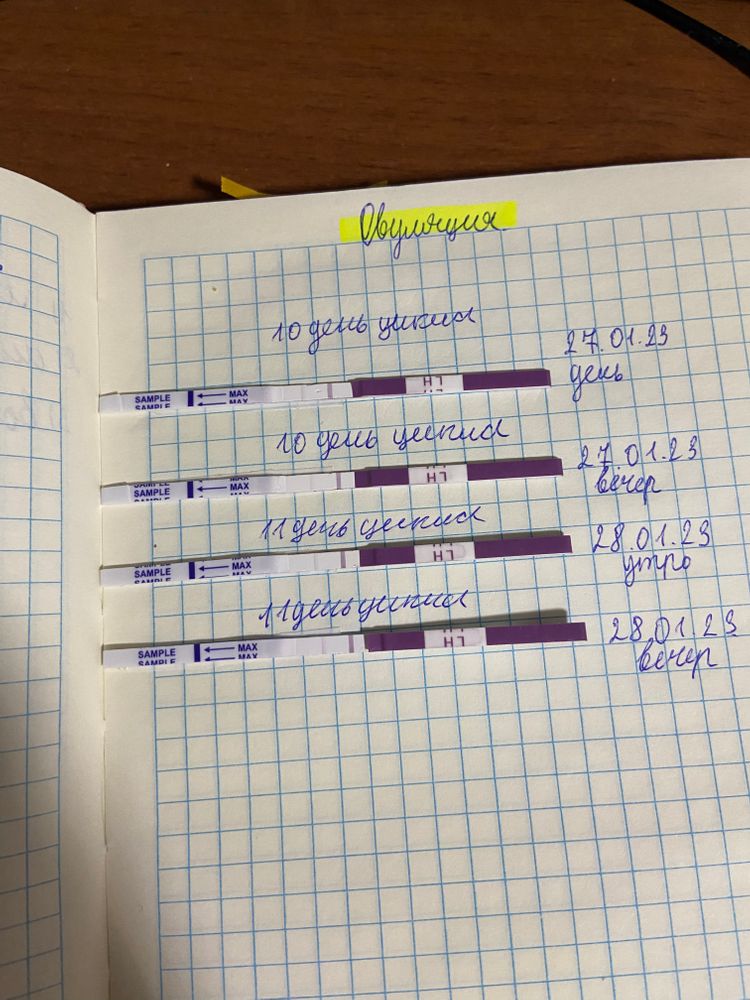 Овуляция
10 день цикла
27.01.23
день
SAMPLE MAX LH
SAMPLE MAX LH
10 день цикла
27.01.23
вечер
SAMPLE MAX LH
SAMPLE MAX
SAMPLE
11 день цикла
28.01.23
утро
SAMPLE MAX LH
SAMPLE MAX
11 день цикла
28.01.23
вечер
SAMPLE MAX LH
SAMPLE MAX